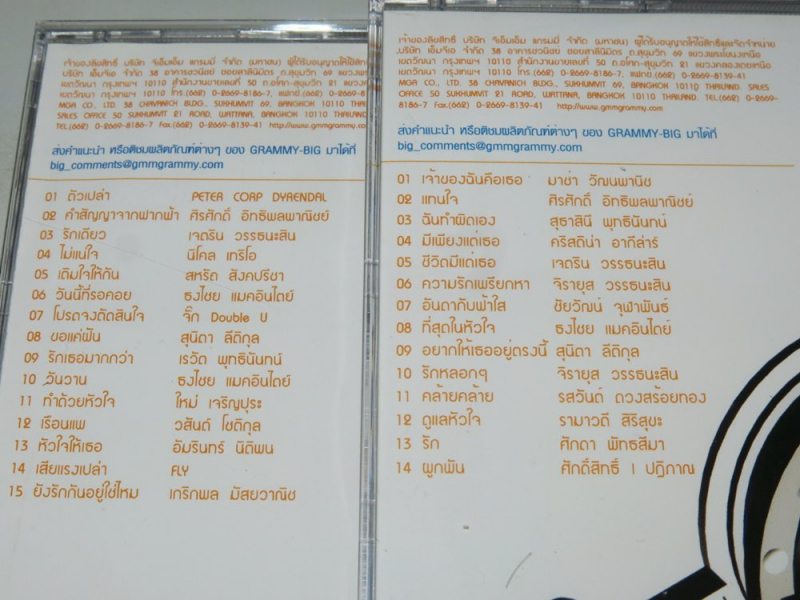 เจ้าของลิขสิทธิ์ บริษัท จีเอ็มเอ็ม แกรมมี่ จำกัด (มหาชน) ผู้ได้รับอนุญาตให้ใช้สิทธิ
บริษัท เอ็มจีเอ จำกัด 38 อาคารชวนิชย์ ซอยสาลีนิมิตร ถ.สุขุมวิท 69 แขวงพระ
เขตวัฒนา กรุงเทพฯ 10110 สำนักงานขายเลขที่ 50 ถ.อโศก-สุขุมวิท 21 แขวง
เขตวัฒนา กรุงเทพฯ 10110 โทร.(662) 0-2669-8186-7, แฟกซ์.(662) 0-2669-8
MGA CO., LTD. 38 CHAVANICH BLDG., SUKHUMVIT 69, BANGKOK 10110 THAILAND.
SALES OFFICE 50 SUKHUMVIT 21 ROAD, WATTANA, BANGKOK 10110 THAILAND.
TEL.(662) 0-2669-8186-7 Fax.(662) 0-2669-8139-41 http://www.gmmgrammy.
ส่งคำแนะนำ หรือติชมผลิตภัณฑ์ต่างๆ ของ GRAMMY-BIG มาได้ที่
big_comments@gmmgrammy.com
01 ตัวเปล่า PETER CORP DYRENDAL
02 คำสัญญาจากฟากฟ้า ศิรศักดิ์ อิทธิพลพาณิชย์
03 รักเดียว เจตริน วรรธนะสิน
04 ไม่แน่ใจ นิโคล เทริโอ
05 เติมใจให้กัน สหรัถ สังคปรีชา
06 วันนี้ที่รอคอย ธงไชย แมคอินไตย์
07 โปรดจงตัดสินใจ จิ๊ก Double U
08 ขอแค่ฝัน สุนิตา ลีติกุล
09 รักเธอมากกว่า เรวัต พุทธินันทน์
10 วันวาน ธงไชย แมคอินไตย์
11 ทำด้วยหัวใจ ใหม่ เจริญปุระ
12 เรือนแพ วสันต์ โชติกุล
13 หัวใจให้เธอ อัมรินทร์ นิติพน
14 เสียแรงเปล่า FLY
15 ยังรักกันอยู่ใช่ไหม เกริกพล มัสยวาณิช
เจ้าของลิขสิทธิ์ บริษัท จีเอ็มเอ็ม แกรมมี่ จำกัด (มหาชน) ผู้ได้รับอนุญาตให้ใช้สิทธิและจัดจำหน่าย
บริษัท เอ็มจีเอ จำกัด 38 อาคารชวนิชย์ ซอยสาลีนิมิตร ถ.สุขุมวิท 69 แขวงพระโขนงเหนือ
เขตวัฒนา กรุงเทพฯ 10110 สำนักงานขายเลขที่ 50 ถ.อโศก-สุขุมวิท 21 แขวงคลองเตยเหนือ
เขตวัฒนา กรุงเทพฯ 10110 โทร.(662) 0-2669-8186-7, แฟกซ์.(662) 0-2669-8139-41
MGA CO., LTD. 38 CHAVANICH BLDG., SUKHUMVIT 69, BANGKOK 10110 THAILAND. SALES
OFFICE 50 SUKHUMVIT 21 ROAD, WATTANA, BANGKOK 10110 THAILAND. TEL.(662) 0-2669-
8186-7 Fax.(662) 0-2669-8139-41 http://www.gmmgrammy.com
ส่งคำแนะนำ หรือติชมผลิตภัณฑ์ต่างๆ ของ GRAMMY-BIG มาได้ที่
big_comments@gmmgrammy.com
01 เจ้าของฉันคือเธอ มาช่า วัฒนพานิช
02 แทนใจ ศิรศักดิ์ อิทธิพลพาณิชย์
03 ฉันทำผิดเอง สุธาสินี พุทธินันทน์
04 มีเพียงแต่เธอ คริสติน่า อากีล่าร์
05 ชีวิตมีแต่เธอ เจตริน วรรธนะสิน
06 ความรักเพรียกหา จิรายุส วรรธนะสิน
07 อันดากับฟ้าใส ชัยวัฒน์ จุฬาพันธ์
08 ที่สุดในหัวใจ ธงไชย แมคอินไตย์
09 อยากให้เธออยู่ตรงนี้ สุนิตา ลีติกุล
10 รักหลอกๆ จิรายุส วรรธนะสิน
11 คล้ายคล้าย รสวันต์ ดวงสร้อยทอง
12 ดูแลหัวใจ รามาวดี สิริสุขะ
13 รัก ศักดา พัทธสีมา
14 ผูกพัน ศักดิ์สิทธิ์ | ปฏิภาณ